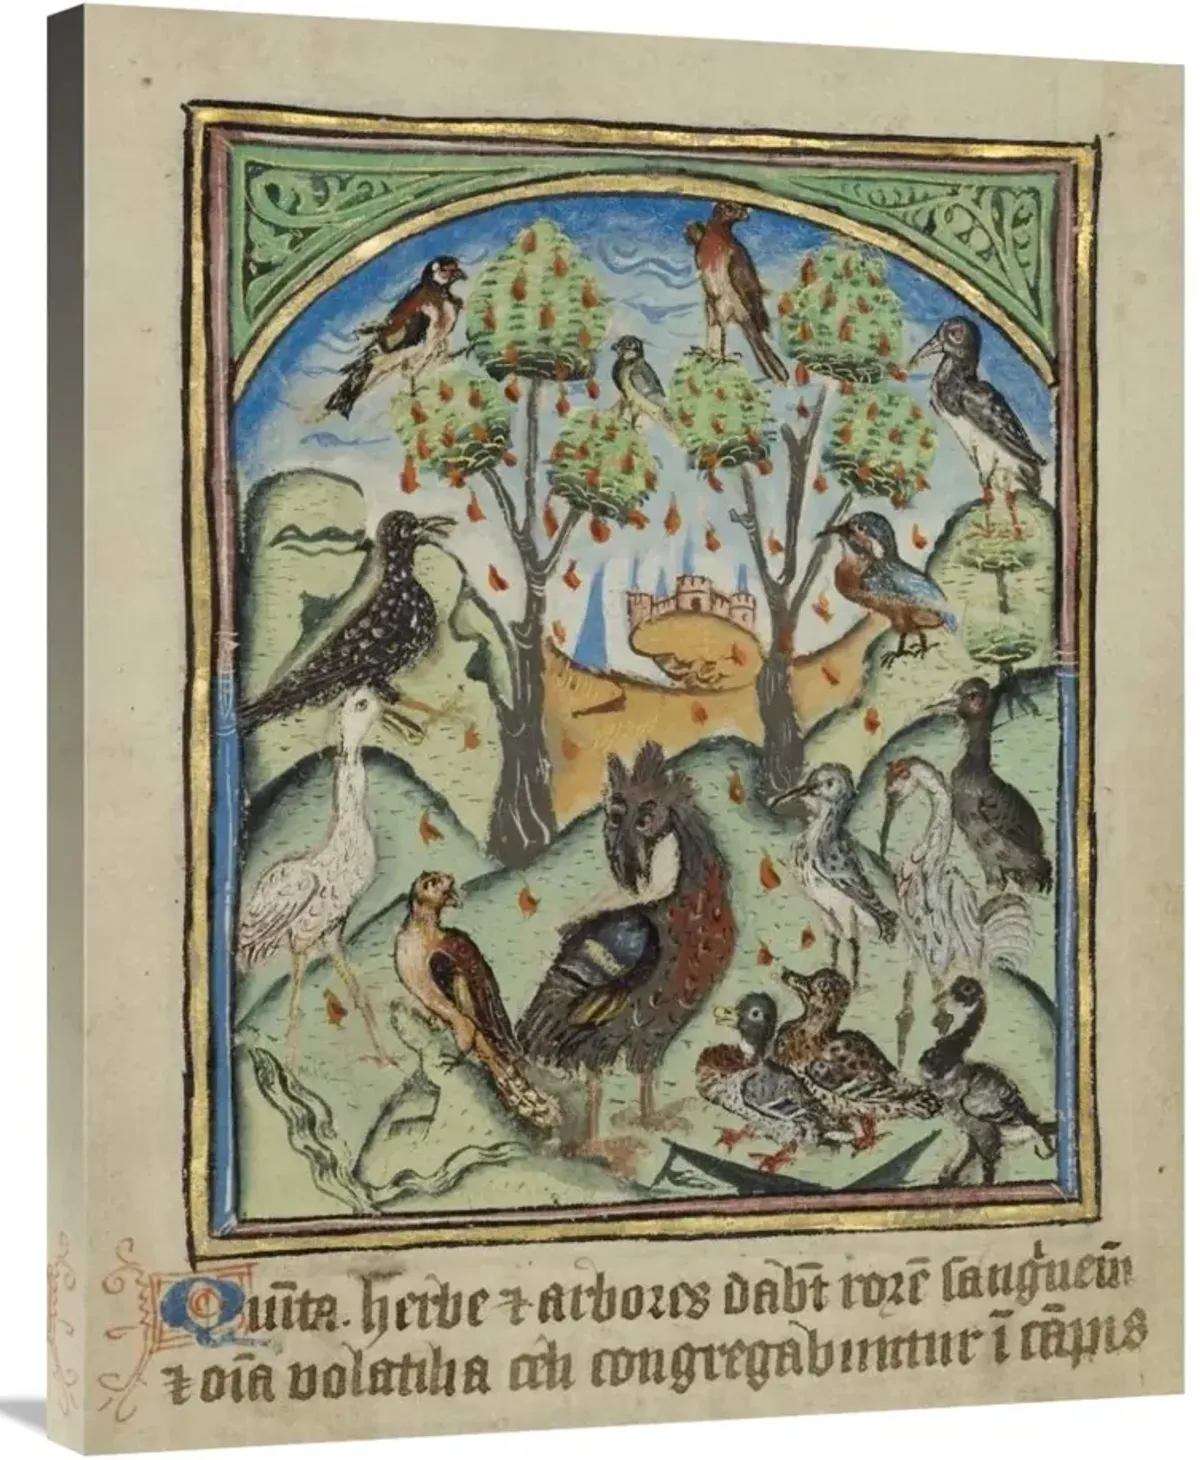 Quīta. herbe ⁊ arbores dabt̄ rorē sanguneū
⁊ oīa volatilia celi congregabuntur ī cāpis